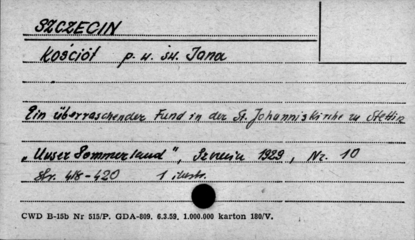 SZCZECIN
Kościół p. w. św. Jana
Ein überraschender Fund in der St. Johanniskirche zu Stettin
„Unser Pommerland", 1929, Nr. 10
Str. 418-420 1 ilustr.
CWD B-15b Nr 515/P. GDA-809. 6.3.59. 1.000.000 karton 180/V.